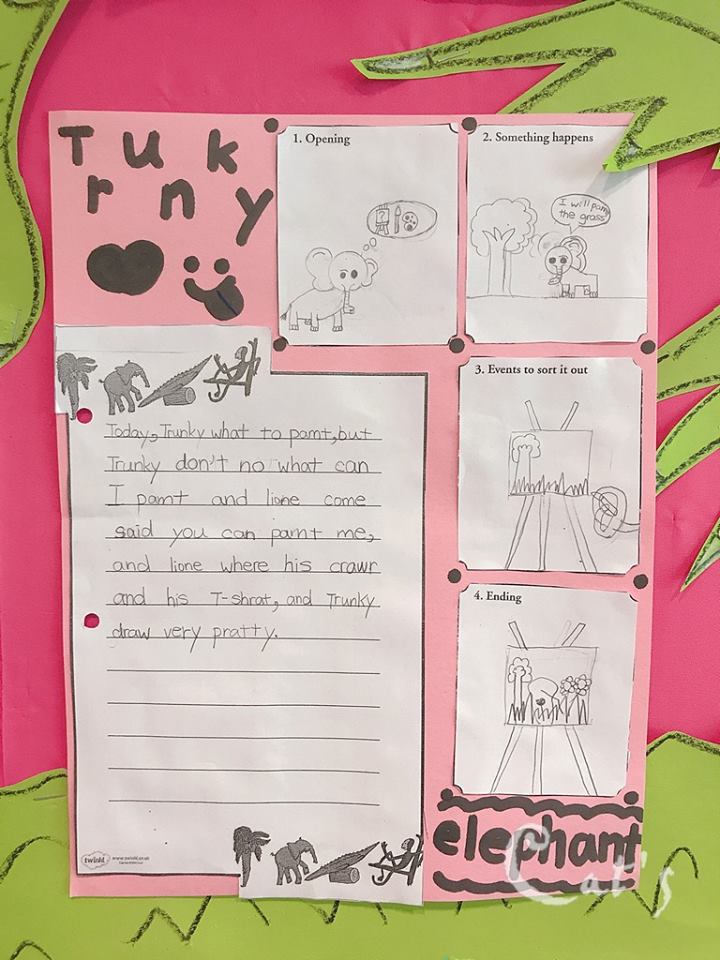 T u k
r n y
1. Opening
2. Something happens
I will paint
the grass
3. Events to sort it out
4. Ending
Today, Trunky what to pamt, but
Trunky don't no what can
I pamt and lione come
said you can pamt me,
and lione where his crawr
and his T-shrat, and Trunky
draw very pratty.
twinkl
www.twinkl.co.uk
elephant
Cat's